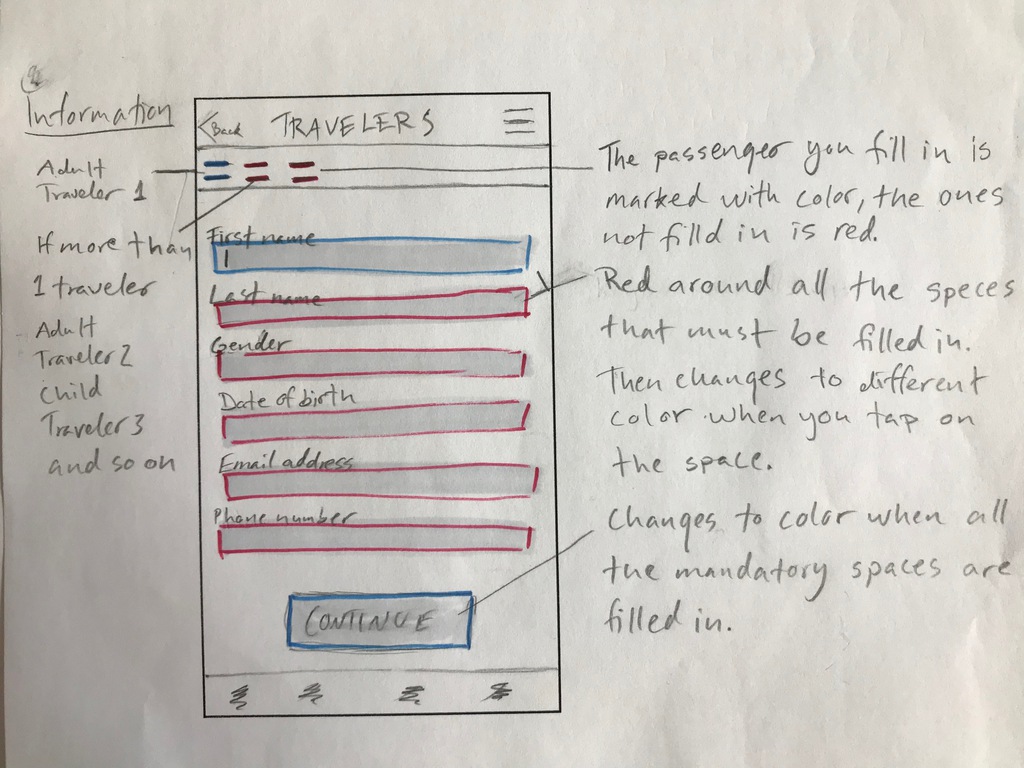 Information
Adult
Traveler 1
If more than
1 traveler
Adult
Traveler 2
Child
Traveler 3
and so on
Back TRAVELERS
First name
Last name
Gender
Date of birth
Email address
Phone number
CONTINUE
The passenger you fill in is
marked with color, the ones
not filld in is red.
Red around all the speces
that must be filled in.
Then changes to different
color when you tap on
the space.
Changes to color when all
the mandatory spaces are
filled in.